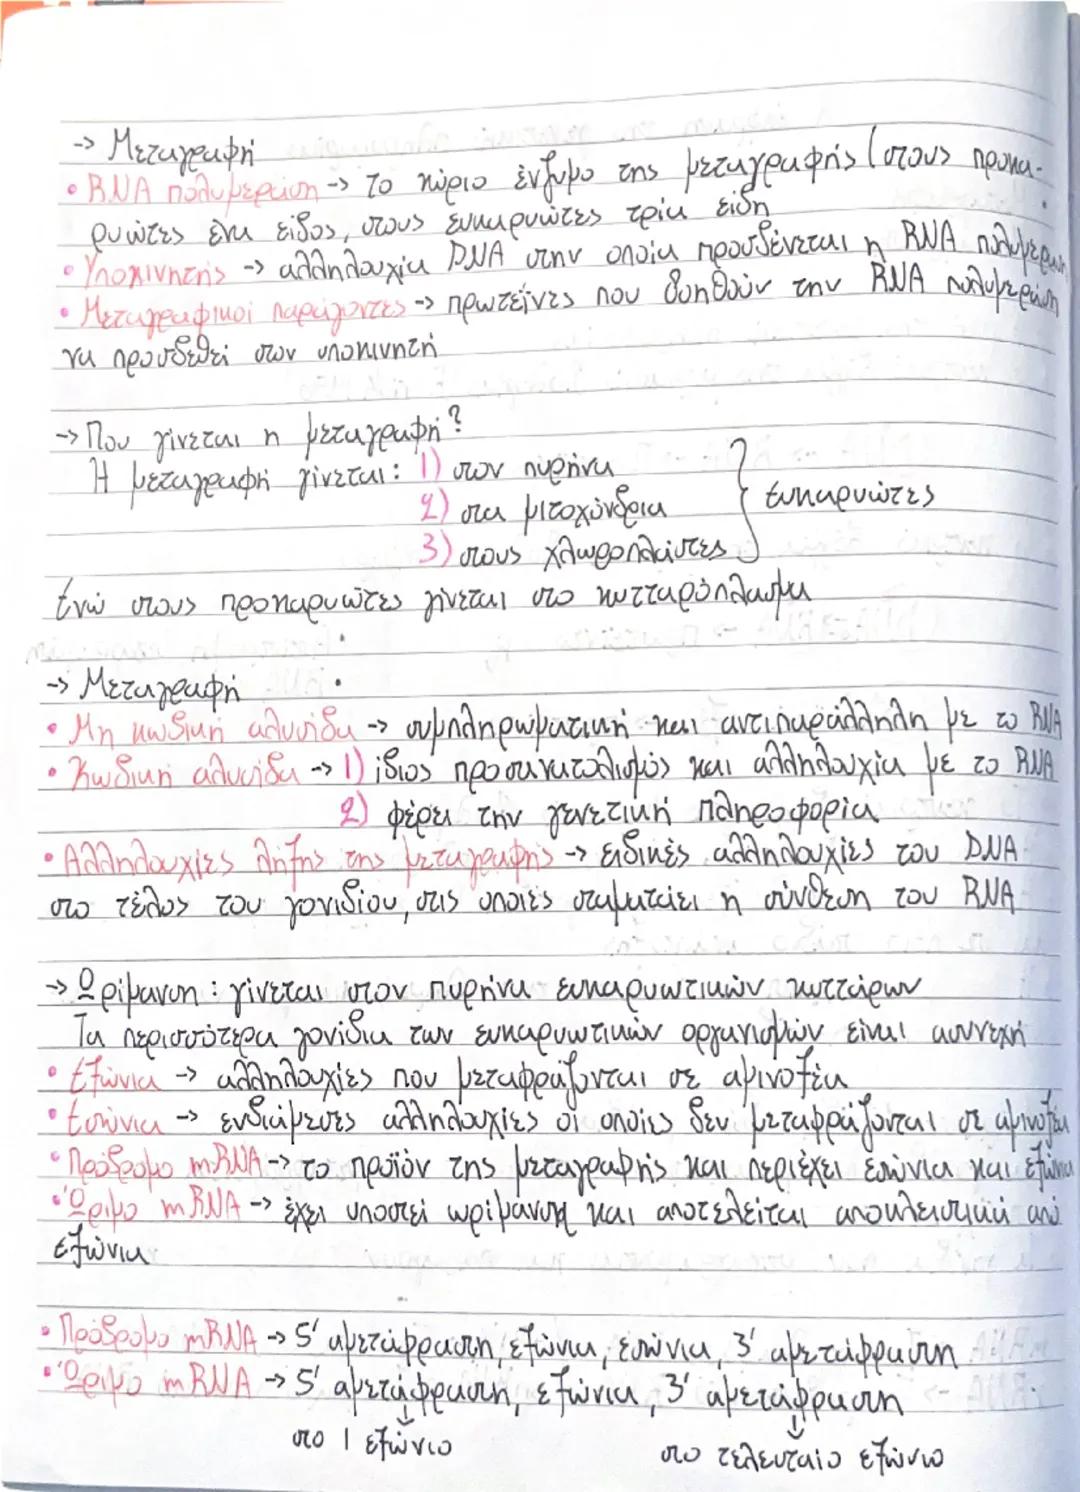 -> Μεταγραφή
• RNA πολυμεράση -> το κύριο ένζυμο της μεταγραφής (στους προκα-
ρυώτες ένα είδος, στους ευκαρυώτες τρία είδη
• Υποκινητής -> αλληλουχία DNA στην οποία προσδένεται η RNA πολυμεράση
• Μεταγραφικοί παράγοντες -> πρωτεΐνες που βοηθούν την RNA πολυμεράση
να προσδεθεί στον υποκινητή
-> Που γίνεται η μεταγραφή?
Η μεταγραφή γίνεται: 1) στον πυρήνα
2) στα μιτοχόνδρια
3) στους χλωροπλάστες
Ευκαρυώτες
Ενώ στους προκαρυώτες γίνεται στο κυτταρόπλασμα
-> Μεταγραφή
• Μη κωδική αλυσίδα -> συμπληρωματική και αντιπαράλληλη με το RNA
• Κωδική αλυσίδα -> 1) ίδιος προσανατολισμός και αλληλουχία με το RNA
2) φέρει την γενετική πληροφορία
• Αλληλουχίες λήξης της μεταγραφής -> ειδικές αλληλουχίες του DNA
στο τέλος του γονιδίου, στις οποίες σταματάει η σύνθεση του RNA
-> Ωρίμανση : γίνεται στον πυρήνα ευκαρυωτικών κυττάρων
Τα περισσότερα γονίδια των ευκαρυωτικών οργανισμών είναι ασυνεχή
• Εξώνια -> αλληλουχίες που μεταφράζονται σε αμινοξέα
• Εσώνια -> ενδιάμεσες αλληλουχίες οι οποίες δεν μεταφράζονται σε αμινοξέα
• Πρόδρομο mRNA -> το προϊόν της μεταγραφής και περιέχει εσώνια και εξώνια
• Ώριμο mRNA -> έχει υποστεί ωρίμανση και αποτελείται αποκλειστικά από
εξώνια
• Πρόδρομο mRNA -> 5' αμετάφραστη, εξώνια, εσώνια, 3' αμετάφραστη
• Ώριμο mRNA -> 5' αμετάφραστη, εξώνια, 3' αμετάφραστη
στο 1 εξώνιο στο τελευταίο εξώνιο